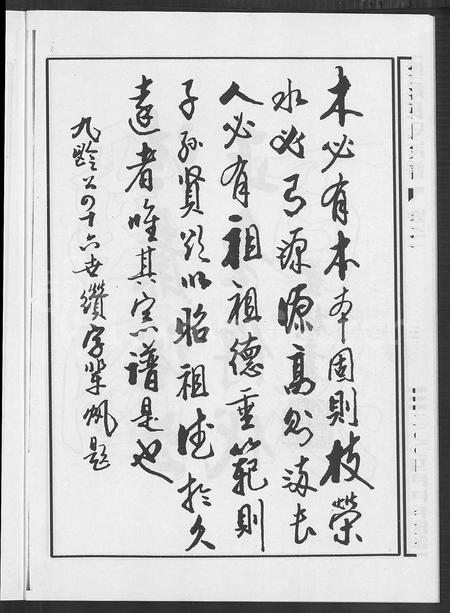 木必有本本固則枝榮
水必有源源高則流長
人必有祖祖德垂範則
子孫賢欲以昭祖德於久
遠者唯其宗譜是也
九齡公四十六世纘字輩帆題